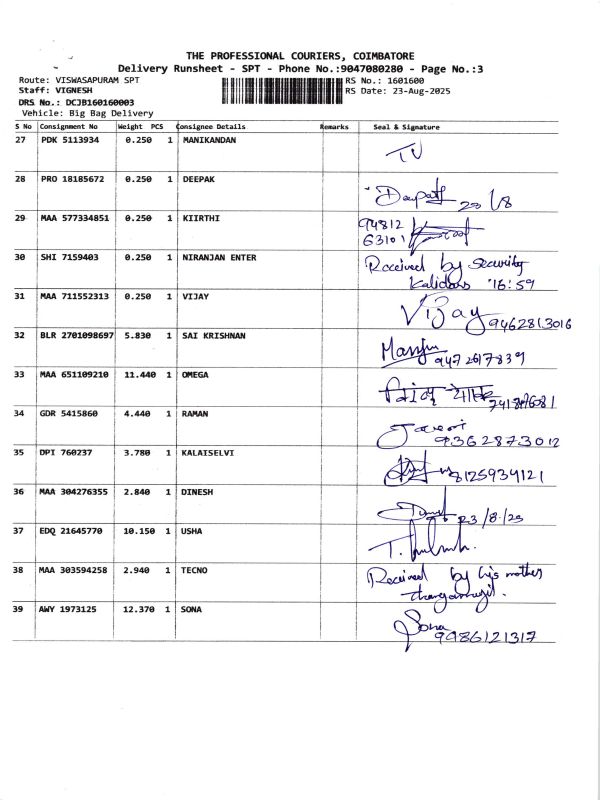 THE PROFESSIONAL COURIERS, COIMBATORE
Delivery Runsheet - SPT - Phone No.:9047080280 - Page No.:3
Route: VISWASAPURAM SPT RS No.: 1601600
Staff: VIGNESH RS Date: 23-Aug-2025
DRS No.: DCJB160160003
Vehicle: Big Bag Delivery
S No Consignment No Weight PCS Consignee Details Remarks Seal & Signature
27 PDK 5113934 0.250 1 MANIKANDAN
28 PRO 18185672 0.250 1 DEEPAK
29 MAA 577334851 0.250 1 KIIRTHI 94812
63101
30 SHI 7159403 0.250 1 NIRANJAN ENTER Received by security
16:59
31 MAA 711552313 0.250 1 VIJAY Vijay 9462813016
32 BLR 2701098697 5.830 1 SAI KRISHNAN 9472617839
33 MAA 651109210 11.440 1 OMEGA
34 GDR 5415860 4.440 1 RAMAN 9362873012
35 DPI 760237 3.780 1 KALAISELVI 8125939121
36 MAA 304276355 2.840 1 DINESH
37 EDQ 21645770 10.150 1 USHA
38 MAA 303594258 2.940 1 TECNO Received by his mother
39 AWY 1973125 12.370 1 SONA Sona
9986121317